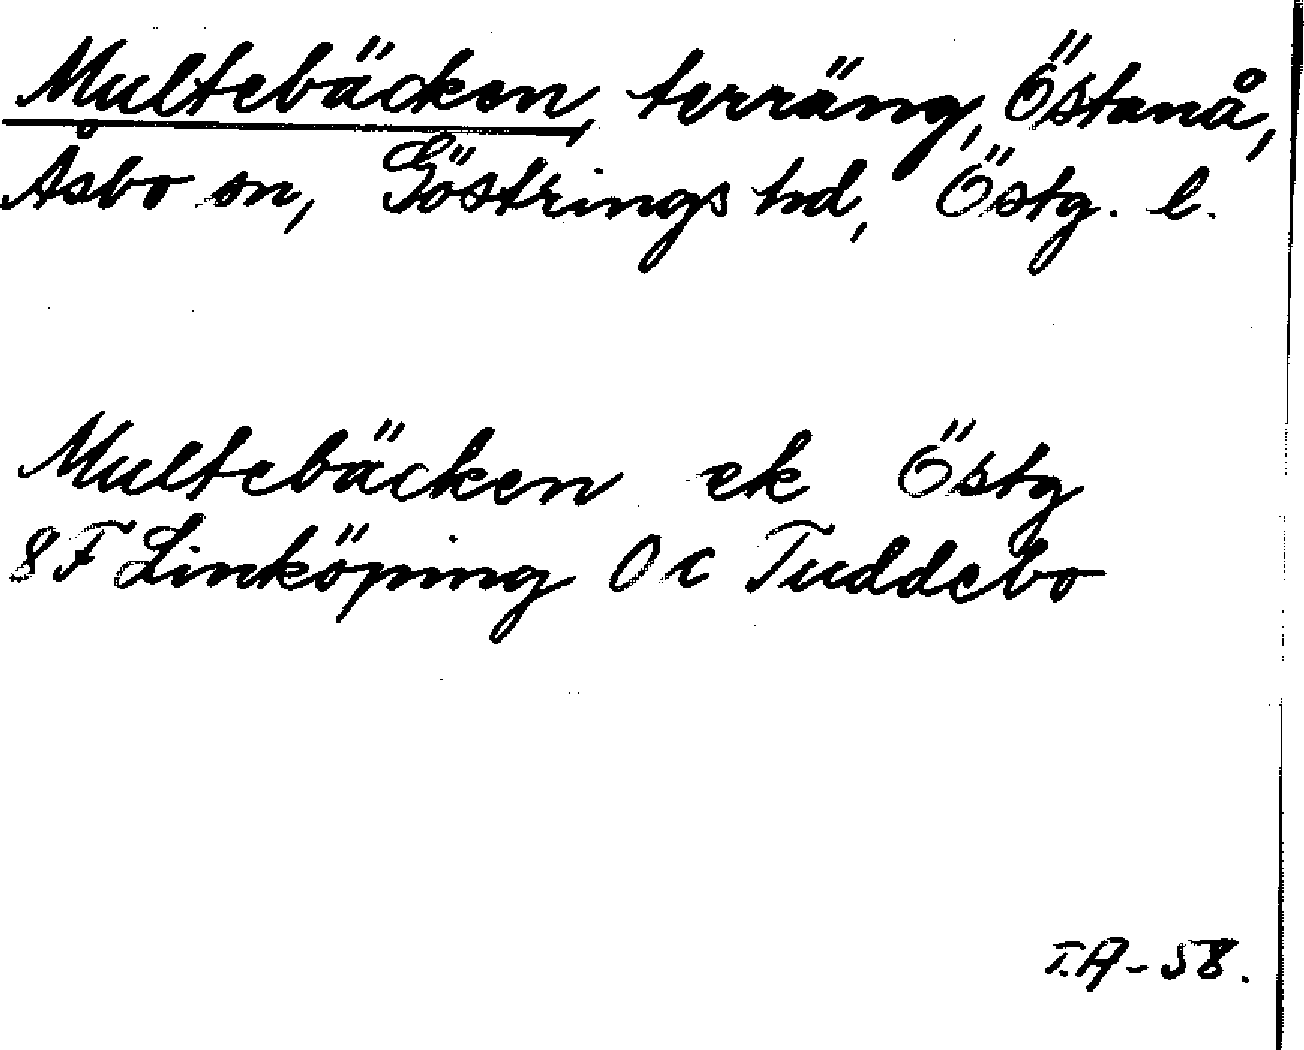 Multebäcken, terräng, Östanå,
Åsbo sn, Göstrings hd, Östg. l.
Multebäcken ek Östg
8F Linköping 0c Tuddebo
T.A-58.